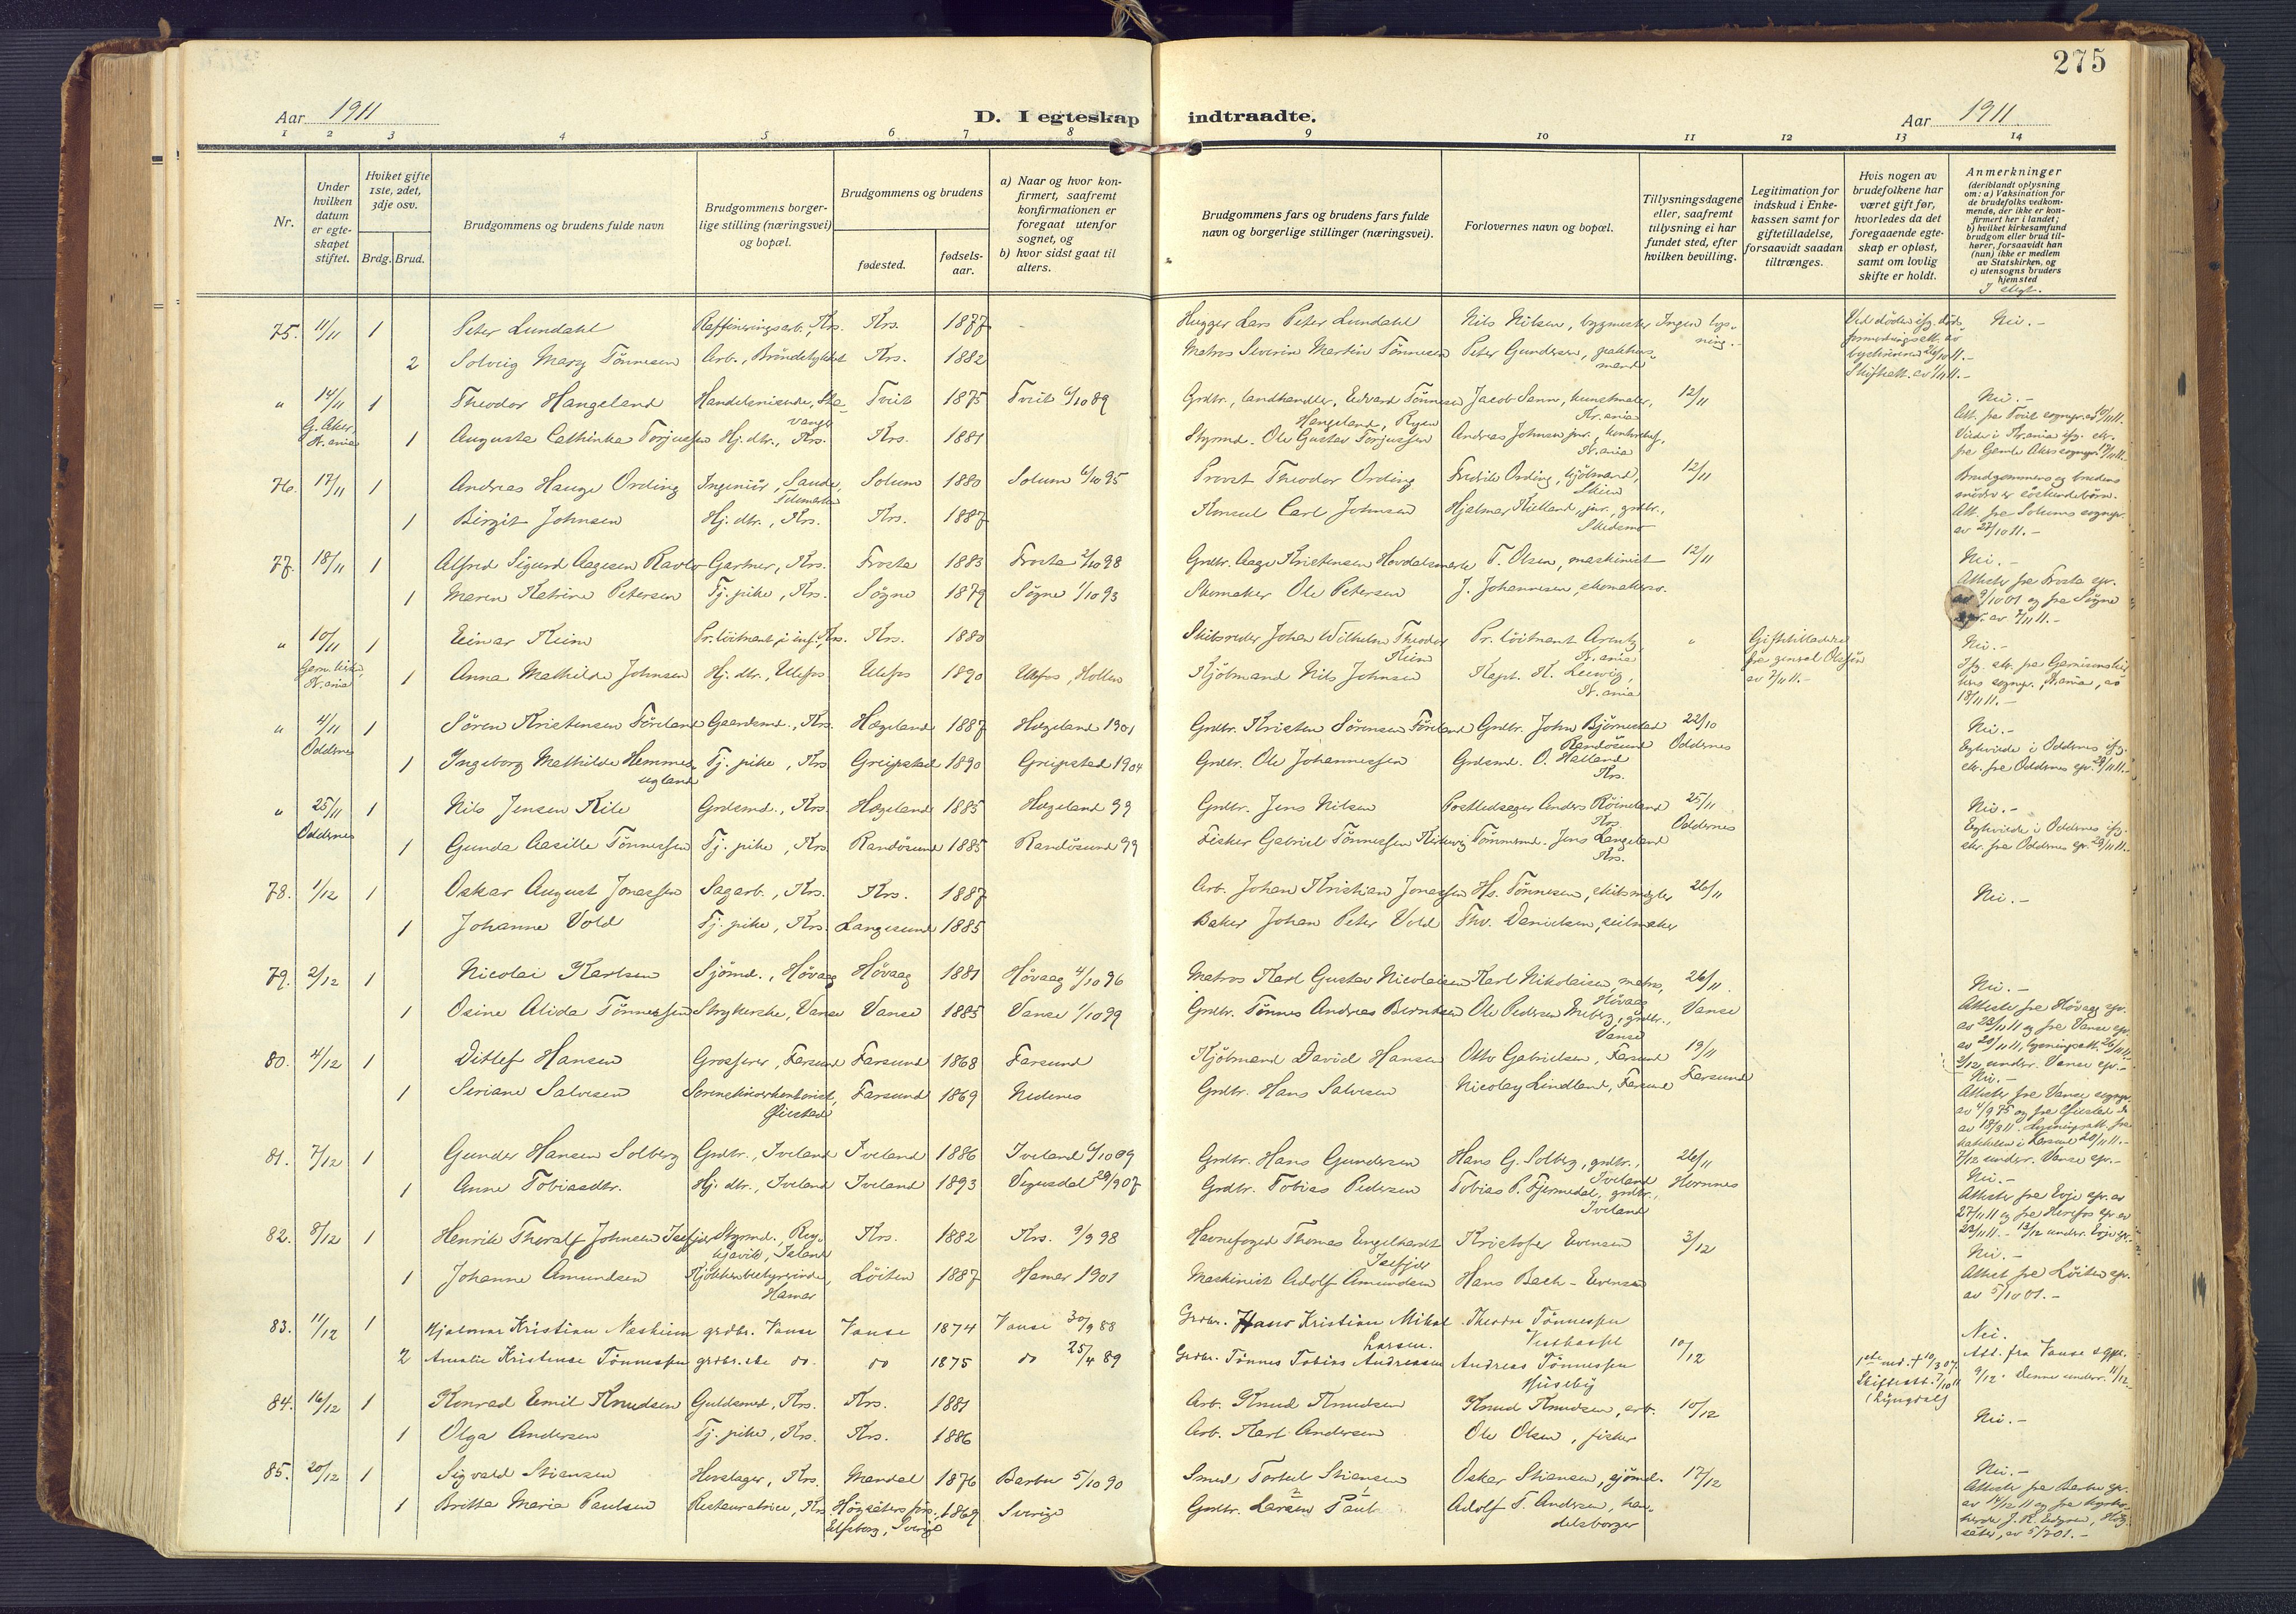 275
Aar 1911
D. I egteskap indtraadte.
Aar 1911.
1 2 3 4 5 6 7 8 9 10 11 12 13 14
Nr.
Under hvilken datum er egteskapet stiftet.
Hviket gifte 1ste, 2det, 3dje osv.
Brdg. Brud.
Brudgommens og brudens fulde navn
Brudgommens borgerlige stilling (næringsvei) og bopæl.
Brudgommens og brudens
fødested.
fødselsaar.
a) Naar og hvor konfirmert, saafremt konfirmationen er foregaat utenfor sognet, og
b) hvor sidst gaat til alters.
Brudgommens fars og brudens fars fulde navn og borgerlige stillinger (næringsvei).
Forlovernes navn og bopæl.
Tillysningsdagene eller, saafremt tillysning ei har fundet sted, efter hvilken bevilling.
Legitimation for indskud i Enkekassen samt for giftetilladelse, forsaavidt saadan tiltrænges.
Hvis nogen av brudefolkene har været gift før, hvorledes da det foregaaende egteskap er opløst, samt om lovlig skifte er holdt.
Anmerkninger
(deriblandt oplysning om: a) Vaksination for de brudefolks vedkommende, der ikke er konfirmert her i landet;
b) hvilket kirkesamfund brudgom eller brud tilhører, forsaavidt han (hun) ikke er medlem av Statskirken, og
c) utensogns bruders hjemsted
I slegt.
75. 11/11 1 Peter Lundahl Raffineringsarb., Krs. Krs. 1877 Hugger Lars Peter Lundahl Nils Nilsen, bygmester Ingen lysning.- Nei.-
2 Solveig Mary Tönnesen Arb., Krs. 1882 Matros Severin Martin Tönnesen Peter Gundersen, pakhusmand
" 14/11 G. Aker, Kr.ania 1 Theodor Hangeland Handelsreisende, Stavanger Tveit 1875 Tveit 6/10 89 Grdbr., landhandler, Edvard Tönnesen Hangeland, Ryen Jacob Sann, kunstmaler, Kr.ania 12/11 Nei.-
1 Auguste Cathinka Torjussen Hj. dtr., Krs. Krs. 1881 Styrmd. Ole Gustav Torjussen Andreas Johnsen jnr., Kr.ania
76. 17/11 1 Andreas Hauge Ording Ingeniör, Saude, Telemarken Solum 1880 Solum 6/10 95 Provst Theodor Ording Fredrik Ording, kjöbmand, Skien 12/11 Brudgommens og brudens mödre er söskendebörn.
1 Birgit Johnsen Hj. dtr., Krs. Krs. 1887 Konsul Carl Johnsen Hjalmar Kielland, jnr., grdbr., Skedsmo Att. fra Solums sognepr. av 27/10 11.-
77. 18/11 1 Alfred Sigurd Aagesen Ravlo Gartner, Krs. Frosta 1883 Frosta 2/10 98 Grdbr. Aage Kristensen Hovdalsmarke T. Olsen, maskinist 12/11 Nei.-
1 Maren Katrine Petersen Tj. pike, Krs. Søgne 1879 Søgne 1/10 93 Skomaker Ole Petersen J. Johannesen, skomakersv. Attester fra Frosta spr. av 9/10 01 og fra Søgne spr. av 7/11 11.-
" 10/11 Garn. kirke, Kr.ania 1 Einar Keim Pr. löitnant i inf., Krs. Krs. 1880 Skibsreder Johan Wilhelm Theodor Keim Pr. löitnant Arentz, Kr.ania " Giftetilladelse fra general Olssön av 7/11 11.- Nei.-
1 Anna Mathilde Johnsen Hj. dtr., Ulefos Ulefos 1890 Ulefos, Hollen Kjöbmand Nils Johnsen Kapt. K. Ludwig, Kr.ania
" 4/11 Oddernes 1 Sören Kristensen Föreland Gaardsmd., Krs. Hægeland 1887 Hægeland 1901 Grdbr. Kristen Sörensen Föreland Grdbr. John Björnestad Randösund 22/10 Oddernes Nei.-
1 Ingeborg Mathilde Hemmesugland Tj. pike, Krs. Greipstad 1890 Greipstad 1904 Grdbr. Ole Johannessen Grdsmd. O. Helland Krs. Egteviede i Oddernes ifg. skr. fra Oddernes spr. 29/11 11.-
" 25/11 Oddernes 1 Nils Jensen Kile Grdsmd., Krs. Hægeland 1885 Hægeland 99 Grdbr. Jens Nilsen Postledsager Anders Röineland Krs. 25/11 Oddernes Nei.-
1 Gunda Aasille Tönnessen Tj. pike, Krs. Randösund 1885 Randösund 99 Fisker Gabriel Tönnessen Kirkevig Tömmermd. Jens Langeland Krs. Egteviede i Oddernes ifg. skr. fra Oddernes spr. 29/11 11.-
78. 1/12 1 Oskar August Jonassen Sagarb., Krs. Krs. 1887 Arb. Johan Kristian Jonassen Hs. Tönnesen, skibsmægler 26/11 Nei.-
1 Johanne Vold Tj. pike, Krs. Langesund 1885 Baker Johan Peter Vold Thv. Danielsen, seilmaker
79. 2/12 1 Nicolai Karlsen Sjömd., Høvaag Høvaag 1881 Høvaag 4/10 96 Matros Karl Gustav Nicolaisen Karl Nikolaisen, matros, Høvaag 26/11 Nei.-
1 Osine Alida Tönnessen Strykerske, Vanse Vanse 1885 Vanse 1/10 99 Grdbr. Tönnes Andreas Berntsen Ole Pedersen Meberg, grdbr., Vanse Vanse Attester fra Høvaag spr. av 23/11 11 og fra Vanse spr. av 20/11 11, lysningsatt. 26/11 11.- 2/12 underr. Vanse spr.-
80. 4/12 1 Ditlef Hansen Grosserer, Farsund Farsund 1868 Farsund Kjöbmand David Hansen Otto Gabrielsen, Farsund 19/11 Farsund Nei.-
1 Seriane Salvesen Sorenskriverkontorist, Gjerstad Farsund 1869 Nedenes Grdbr. Hans Salvesen Nicolay Lindland, Farsund Attester fra Vanse sognepr. av 4/9 75 og fra Gjerstad do av 18/9 11. Lysningsatt. fra kapellanen i Farsund 20/11 11.- 7/12 underr. Vanse spr.-
81. 7/12 1 Gunder Hansen Solberg Grdbr., Iveland Iveland 1886 Iveland 6/10 09 Grdbr. Hans Gundersen Hans G. Solberg, grdbr., Iveland 26/11 Hornnes Nei.-
1 Anne Tobiasdtr. Hj. dtr., Iveland Iveland 1893 Vegusdal 29/9 07 Grdbr. Tobias Pedersen Tobias P. Fjermedal, grdbr., Iveland Attester fra Evje spr. av 27/11 11 og fra Herefos spr. av 23/11 11.- 13/12 underr. Evje spr.-
82. 8/12 1 Henrik Thoralf Johnsen Isefjær Styrmd., Reykjavik, Island Krs. 1882 Krs. 9/9 98 Havnefoged Thomas Engelhardt Isefjær Kristofer Evensen 3/12 Nei.-
1 Johanne Amundsen Kjøkkenbestyrerinde, Hamar Löiten 1887 Hamar 1901 Maskinist Adolf Amundsen Hans Bach-Evensen Attest fra Löiten spr. av 5/10 01.-
83. 11/12 1 Hjalmar Kristian Næsheim grdbr. Vanse Vanse 1874 Vanse 30/9 88 Grdbr. Hans Kristian Mikal Larsen. Theodor Tönnessen Vesthassel 10/12 Nei.
2 Amalie Kristense Tönnessen grdbr. eke do. do 1875 do 25/4 89 Grdbr. Tönnes Tobias Andreassen Andreas Tönnessen Huseby 1ste md. † 10/3 07. Skifteatt. 7/10 11 (Lyngdal) Att. fra Vanse sgpr. 9/12. Denne underr. 11/12.
84. 16/12 1 Konrad Emil Knudsen Guldsmed, Krs. Krs. 1881 Arb. Knud Knudsen Knud Knudsen, arb. 10/12 Nei.-
1 Olga Andersen Tj. pike, Krs. Krs. 1886 Arb. Karl Andersen Ole Olsen, fisker
85. 20/12 1 Sigvald Stiansen Hovslager, Krs. Mandal 1876 Barbu 5/10 90 Smed Torkel Stiansen Oskar Stiansen, sjömd. 17/12 Nei.-
1 Britta Maria Paulsen Restauratrice, Krs. Högsäters förs., Elfsborg, Sverige 1869 Sverige Grdbr. Larsen Paul Adolf T. Andersen, handelsborger Attester fra Barbu spr. av 14/12 11 og fra kyrkoherde